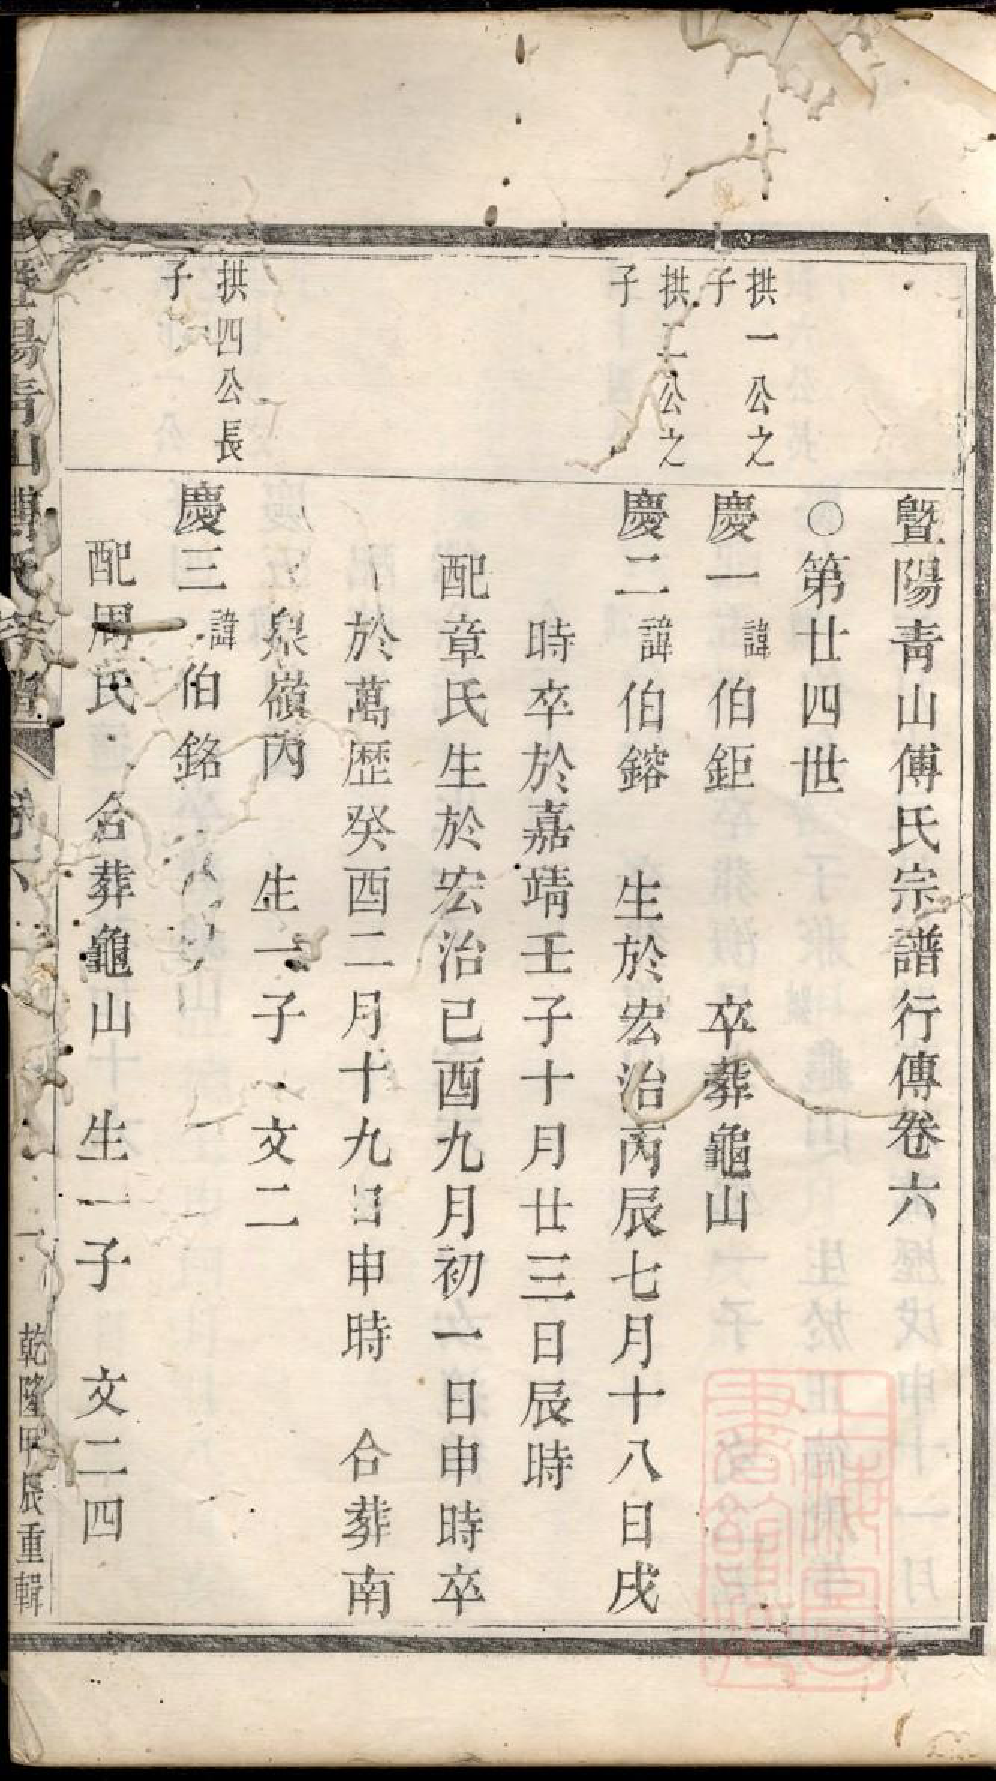 曁陽青山傅氏宗譜行傳卷六
○第廿四世
拱一公之
子
慶一 諱伯鉅 卒葬龜山
拱二公之
子
慶二 諱伯鎔 生於宏治丙辰七月十八日戌
時卒於嘉靖壬子十月廿三日辰時
配章氏生於宏治己酉九月初一日申時卒
於萬歴癸酉二月十九日申時 合葬南
泉嶺丙 生一子 文二
拱四公長
子
慶三 諱伯銘
配周氏 合葬龜山 生一子 文二四
曁陽青山傅氏宗譜 卷六 乾隆甲辰重輯
上海圖書館藏